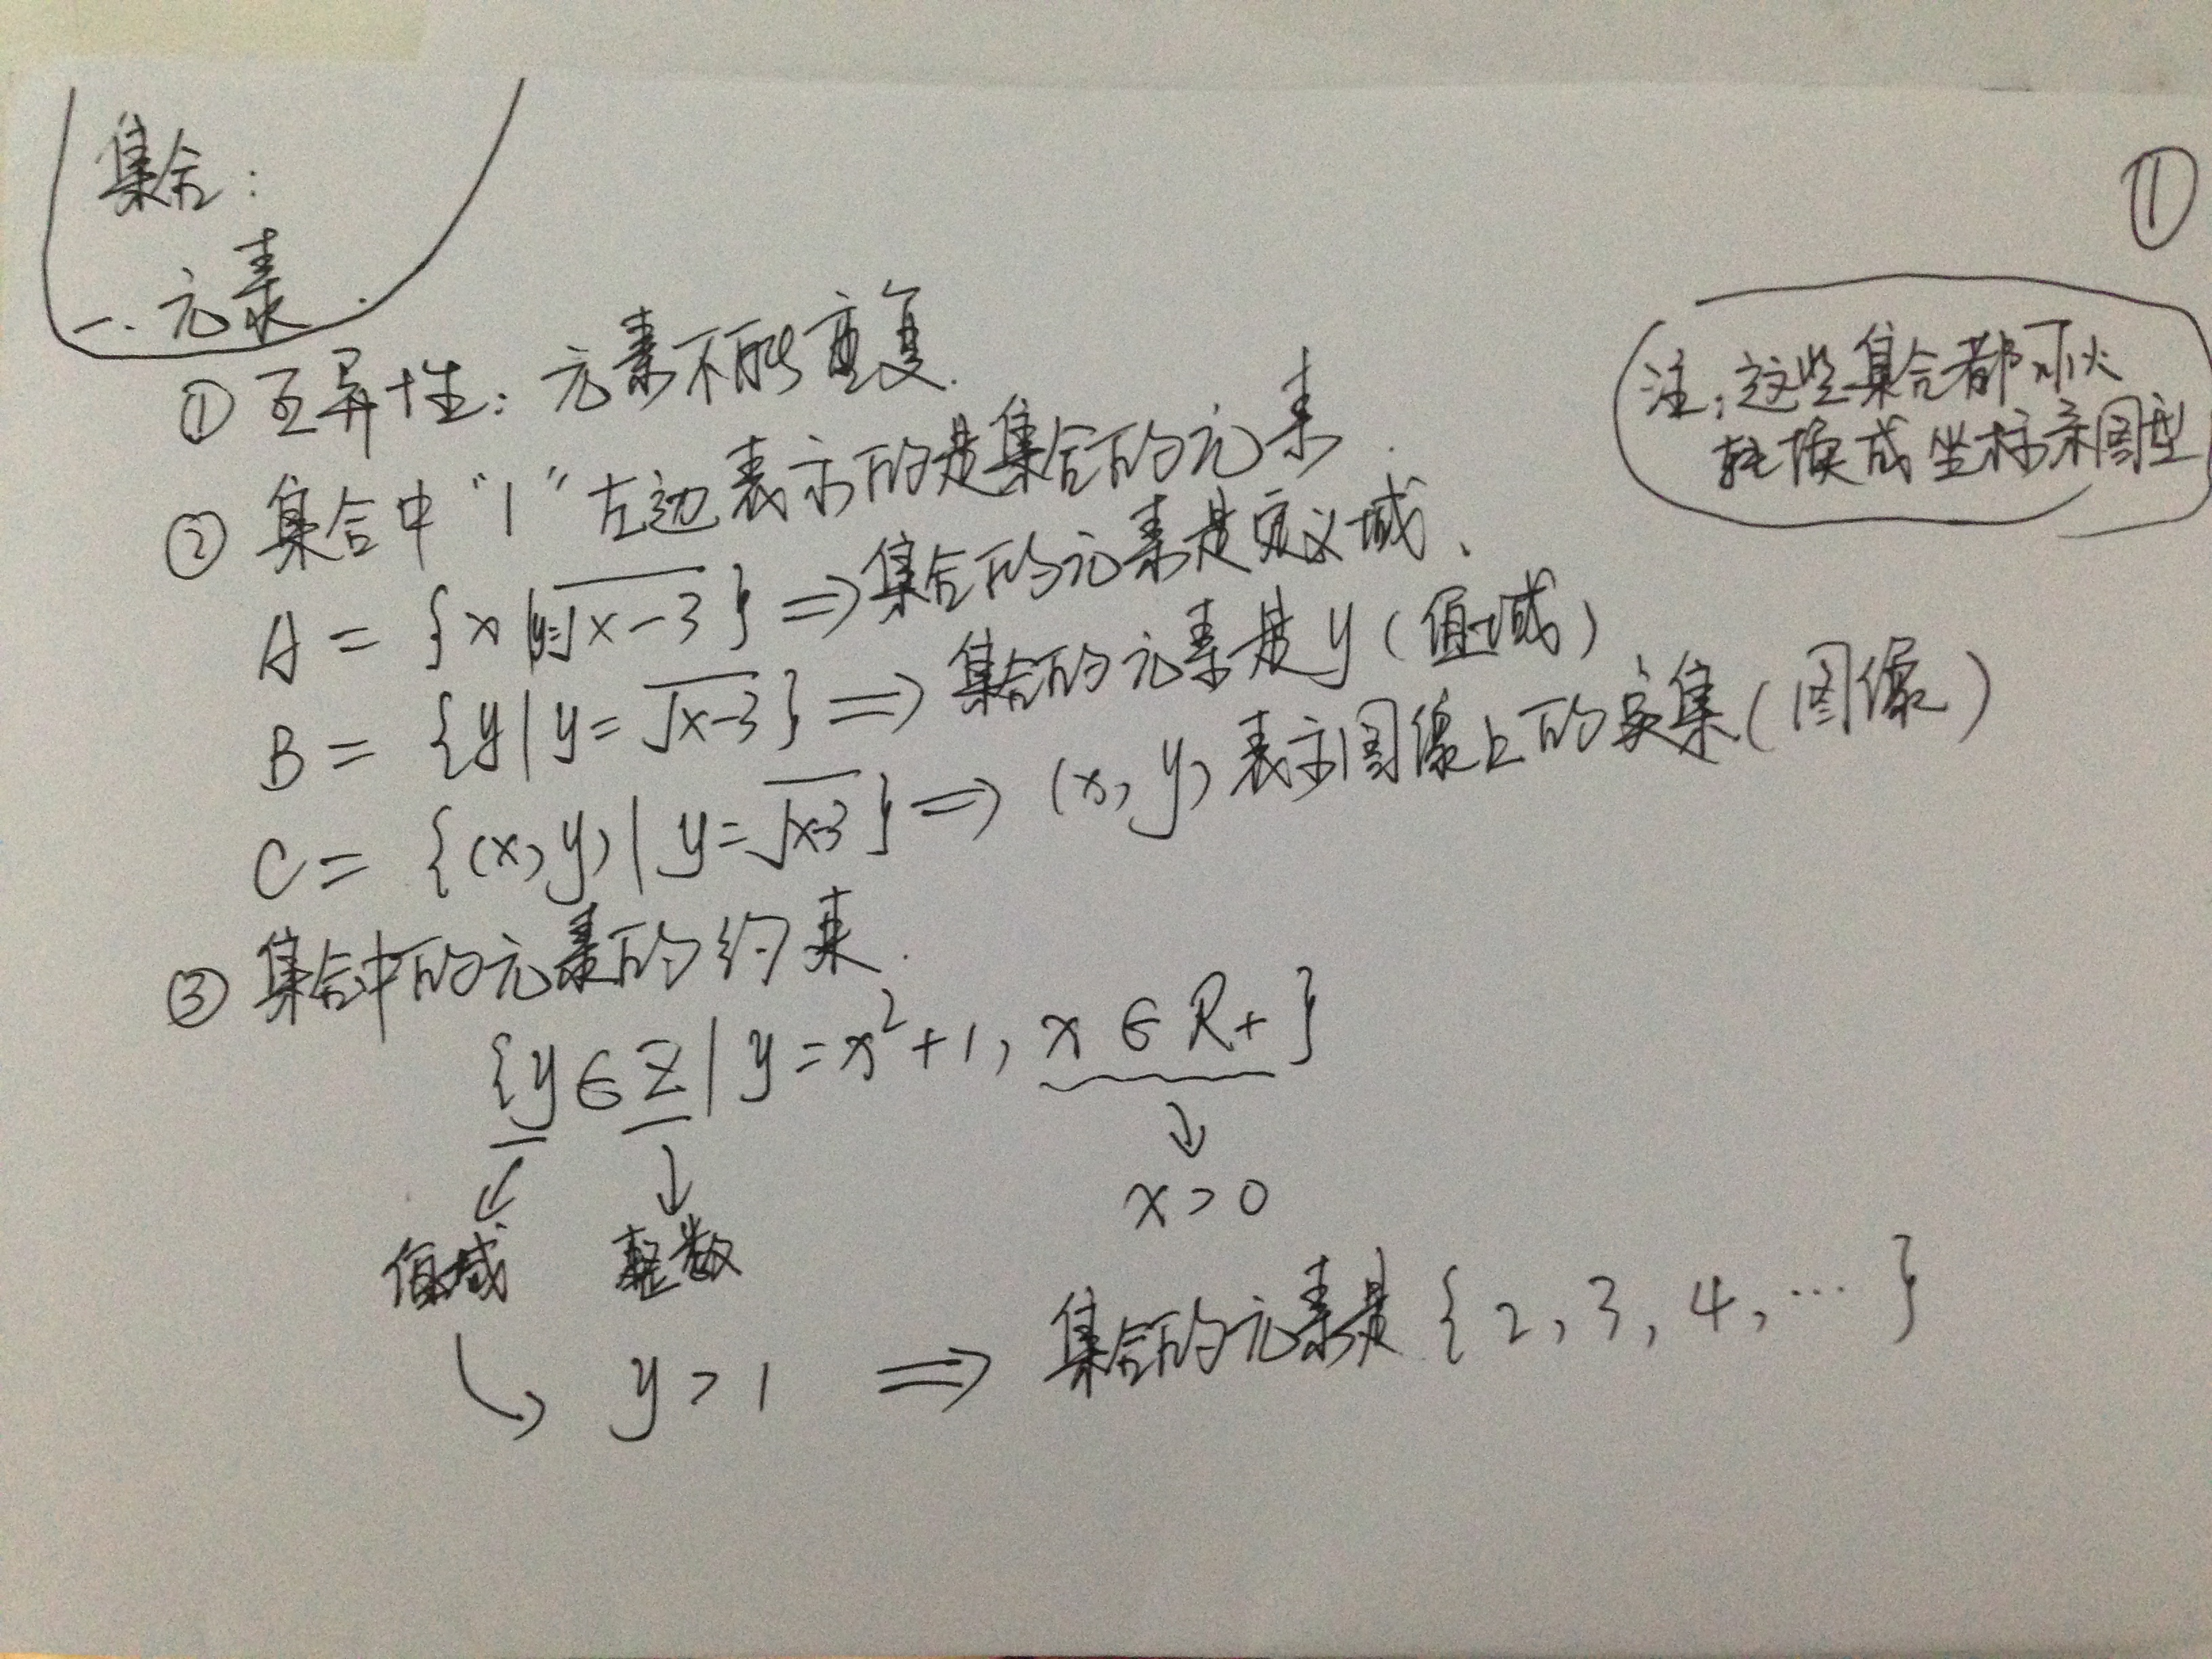 集合:
①
一. 元素
① 互异性: 元素不能重复.
注: 这些集合都可以
转换成坐标系图型
② 集合中“|”左边表示的是集合的元素.
A = {x|y=√x-3} ⇒ 集合的元素是定义域.
B = {y|y=√x-3} ⇒ 集合的元素是y(值域)
C = {(x,y)|y=√x-3} ⇒ (x,y)表示图像上的集(图像)
③ 集合中的元素的约束.
{y∈Z|y=x²+1, x∈R+}
↙ ↓ ↓
值域 整数 x>0
↘ y>1 ⇒ 集合的元素是{2,3,4,…}